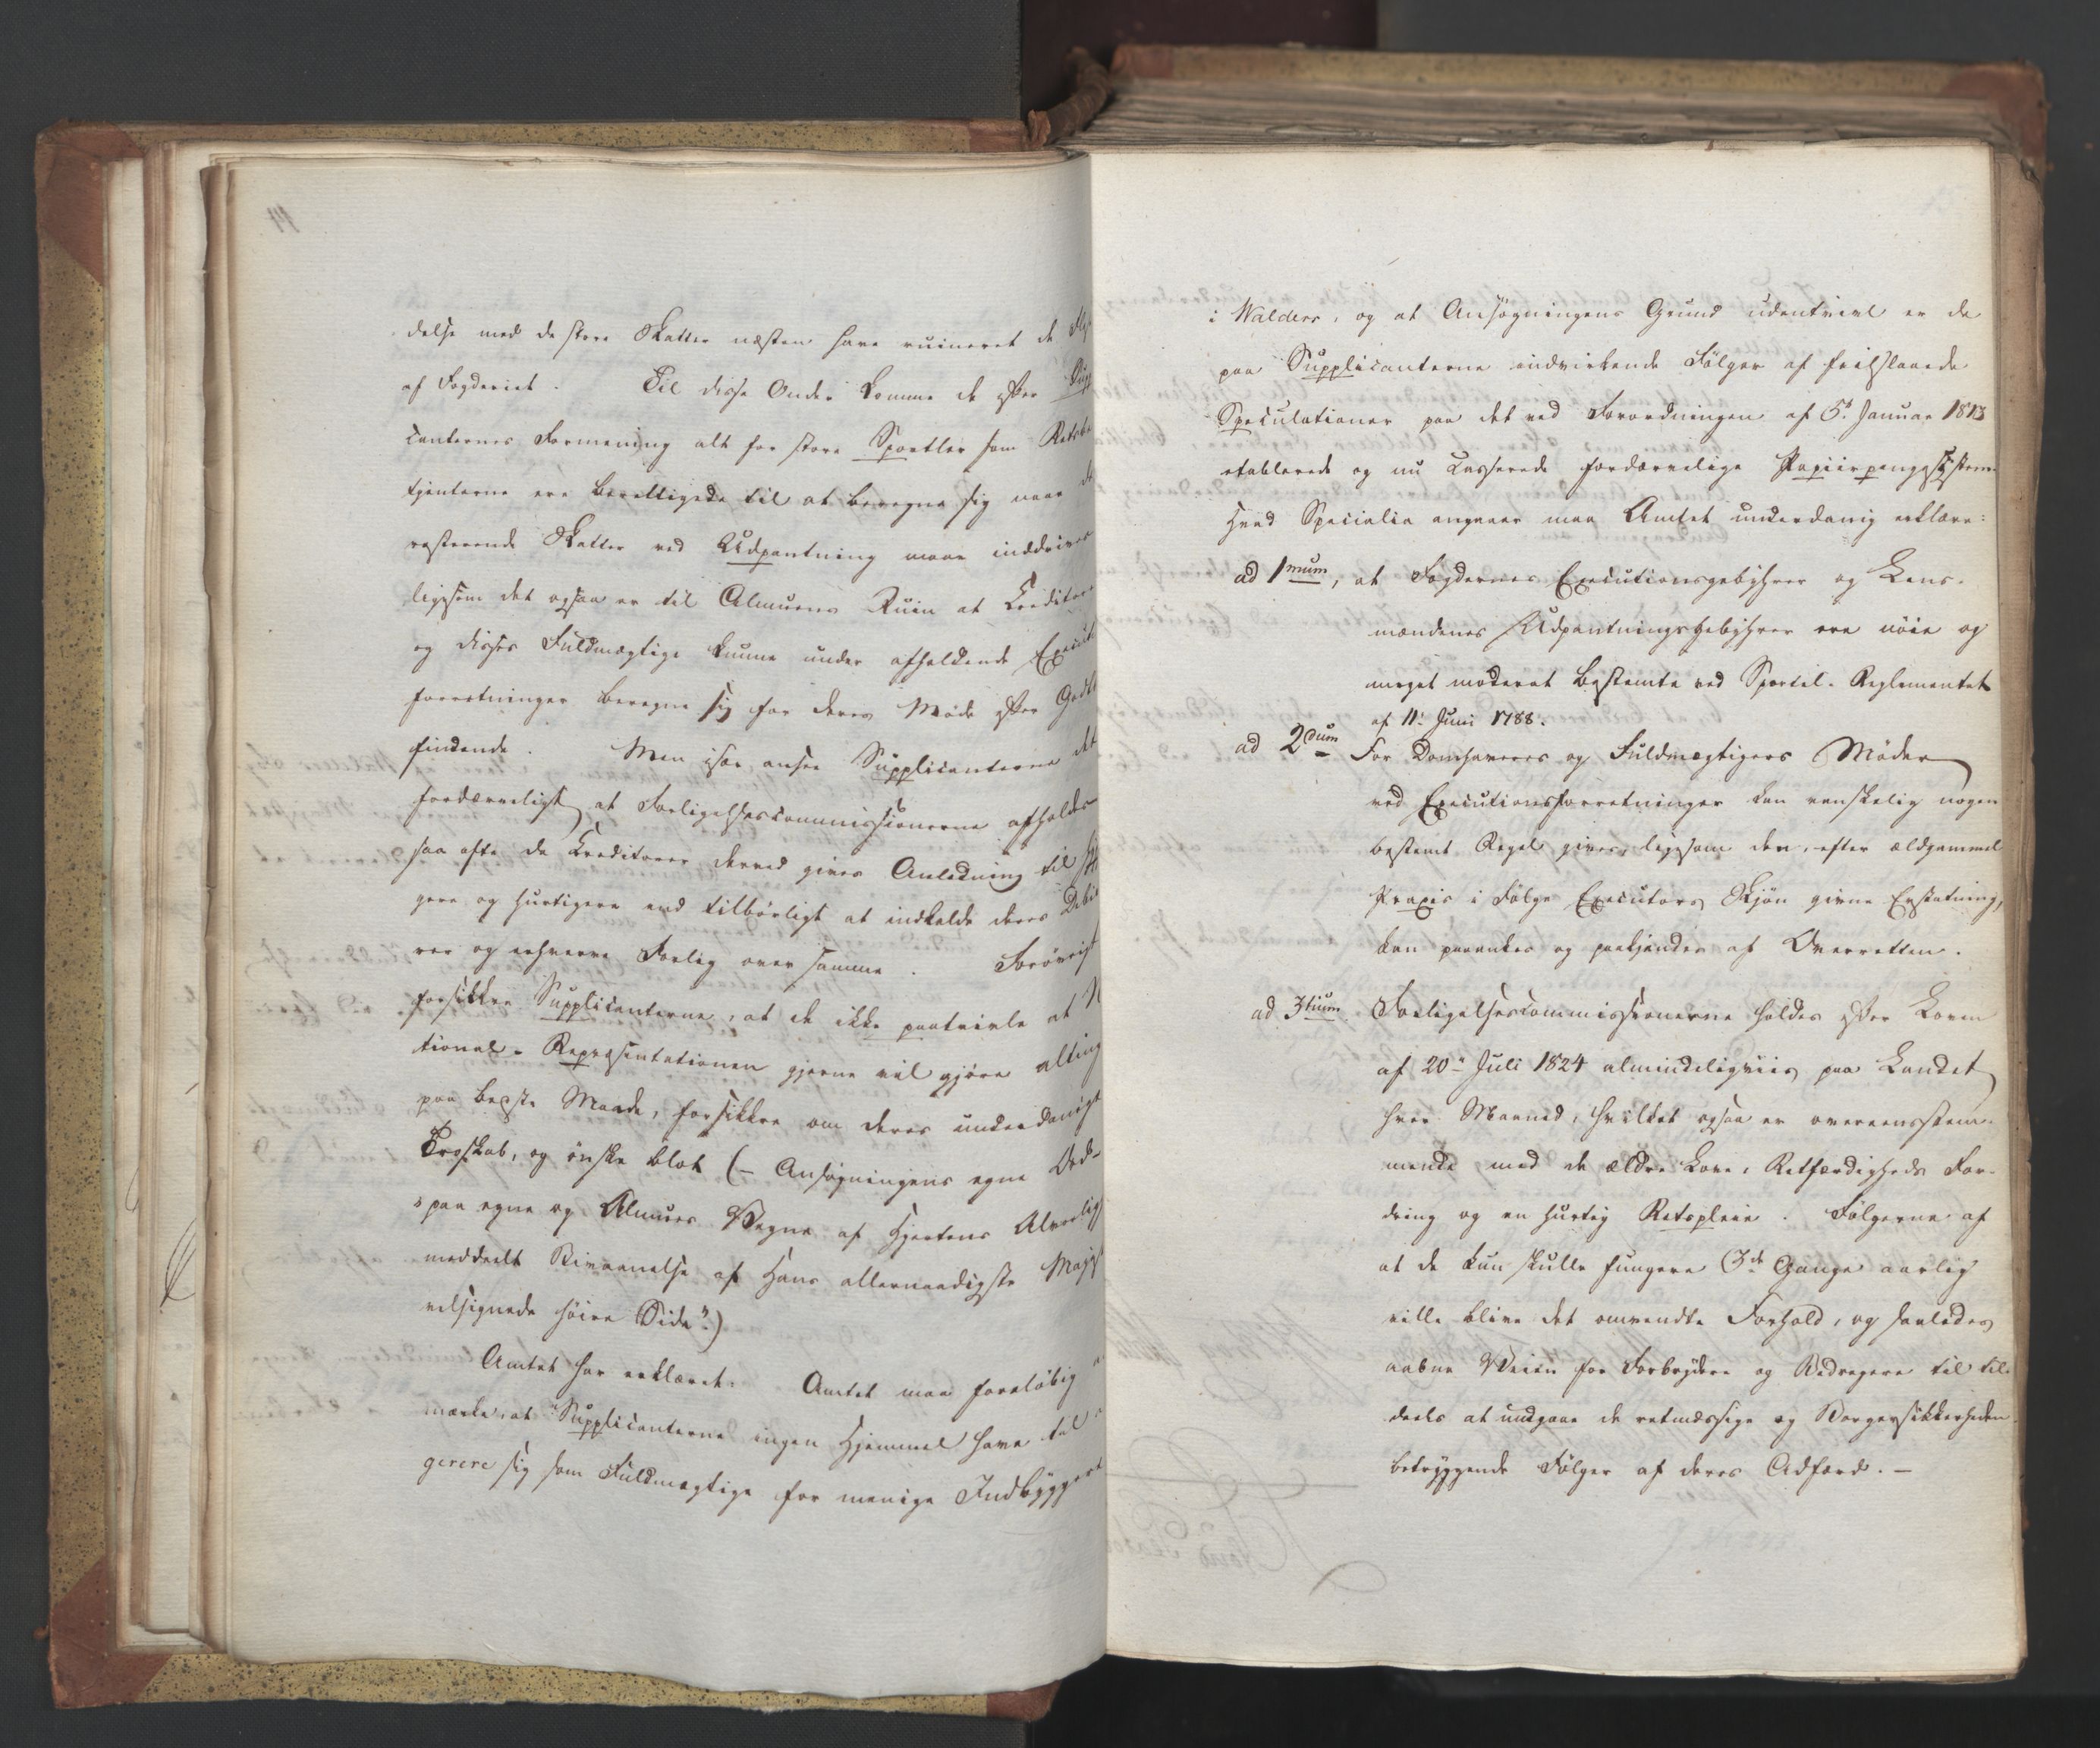 delse med de store Skatter næsten have ruineret de
af Fogderiet. Til disse Onder komme de efter Supp
canternes Formening alt for store Sportler som Retsbe
tjenterne ere berettigede til at beregne sig naar de
resterende Skatter ved Udpantning maae inddrives
ligesom det ogsaa er til Almuens Ruin at Creditorer
og disses Fuldmægtige kunne under afholdende Execut
forretninger beregne sig for deres Møde efter Godt
findende. Men især ansee Supplicanterne det
fordærveligt at Forligelsescommissionerne afholdes
saa ofte da Creditorer derved gives Anledning til
gere og hurtigere end tilbørligt at indkalde deres Debit
rer og erhverve Forlig over samme. Forøvrigt
forsikkre Supplicanterne, at de ikke paatvivle at N
tional-Repræsentationen gjerne vil gjøre alting
paa bedste Maade, forsikkre om deres underdanigst
Troskab, og ønske blot (- Ansøgningens egne Ord-
"paa egne og Almues Vegne af Hjertens Alvorlig
meddeelt Bivaanelse af Hans allernaadigste Majest
velsignede høire Side".)
Amtet har erklæret: Amtet maa foreløbig
mærke, at Supplicanterne ingen Hjemmel have til
gerere sig som Fuldmægtige for menige Indbyggere
i Walders, og at Ansøgningens Grund udentvivl er de
paa Supplicanterne indvirkende Følger af feilslaaede
Speculationer paa det ved Forordningen af 5t Januar 1813
etablerede og nu casserede fordærvelige Papiirpengesystem.
Hvad Specialia angaaer maa Amtet underdanig erklære:
ad 1mum, at Fogdernes Executionsgebyhrer og Lens-
mændenes Udpantningsgebyhrer ere nøie og
meget moderat bestemte ved Sportel-Reglementet
af 11t Juni 1788.
ad 2dum For Domhaveres og Fuldmægtigers Møder
ved Executionsforretninger kan vanskelig nogen
bestemt Regel gives, ligesom den, efter ældgammel
Praxis i Følge Executors Skjøn givne Erstatning,
kan paaankes og paakjendes af Overretten.
ad 3tium Forligelsescommissionerne holdes efter Loven
af 20de Juli 1824 almindeligviis paa Landet
hver Maaned, hvilket ogsaa er overeensstem-
mende med de ældre Love, Retfærdigheds For-
dring og en hurtig Retspleie. Følgerne af
at de kun skulle fungere 3de Gange aarlig
ville blive det omvendte Forhold, og saaledes
aabne Veien for Forbrydere og Bedragere til til-
deels at undgaae de retmæssige og Borgersikkerheden
betryggende Følger af deres Adfærd. -